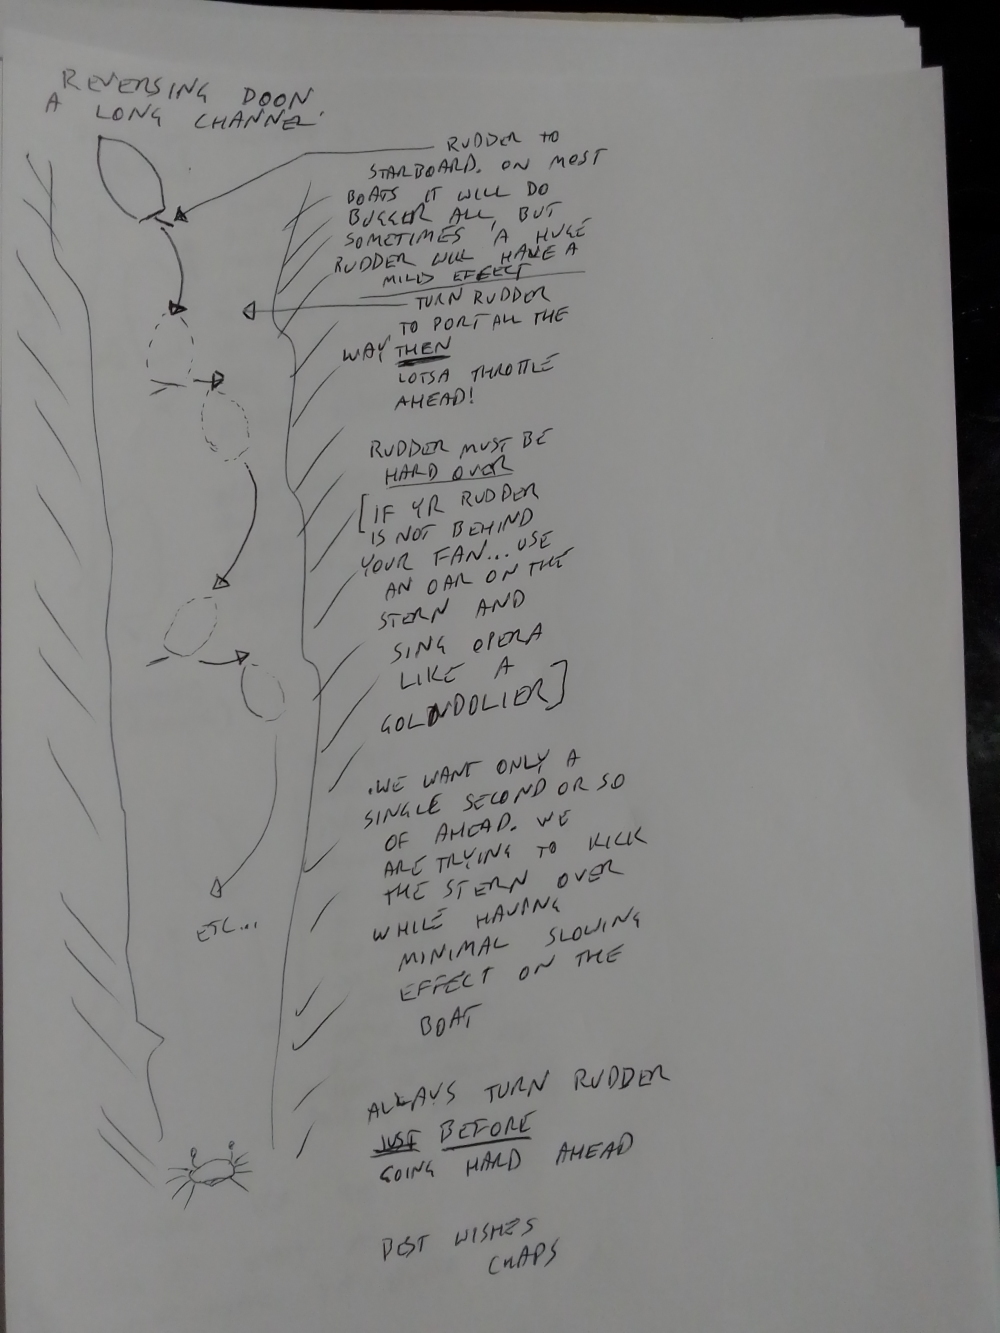 REVERSING DOON
A LONG CHANNEL.
RUDDER TO
STARBOARD. ON MOST
BOATS IT WILL DO
BUGGER ALL, BUT
SOMETIMES A HUGE
RUDDER WILL HAVE A
MILD EFFECT
TURN RUDDER
TO PORT ALL THE
WAY THEN
LOTSA THROTTLE
AHEAD!
RUDDER MUST BE
HARD OVER
[IF YR RUDDER
IS NOT BEHIND
YOUR FAN... USE
AN OAR ON THE
STERN AND
SING OPERA
LIKE A
GOLNDOLIER]
.WE WANT ONLY A
SINGLE SECOND OR SO
OF AHEAD. WE
ARE TRYING TO KICK
THE STERN OVER
WHILE HAVING
MINIMAL SLOWING
EFFECT ON THE
BOAT
ETC...
ALWAYS TURN RUDDER
JUST BEFORE
GOING HARD AHEAD
BEST WISHES
CHAPS